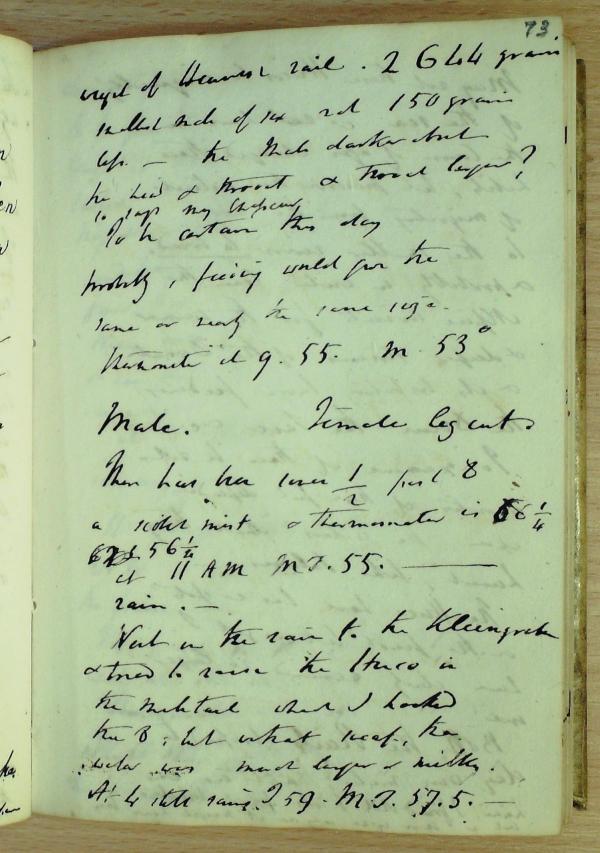 73
weight of Heaviest rail. 2644 grains
smallest male of six rail 150 grains
less — the Male darker about
the head & throat & throat larger?
To be certain this day
probably, freezing would give the
same or nearly the same size.
thermometer at 9. 55. M. 53°
Male. Female leg cut
There has been since 1/2 past 8
a scotch mist & thermometer is 56 1/4
56 1/4
at 11 AM M T. 55. —
rain. —
Went in the rain to the Kleingraben
& tried to raise the Huco in
the where I hooked
the 8; but without success, the
water was much larger & milky.
At 4 still rains. T 59. M T. 57.5. —